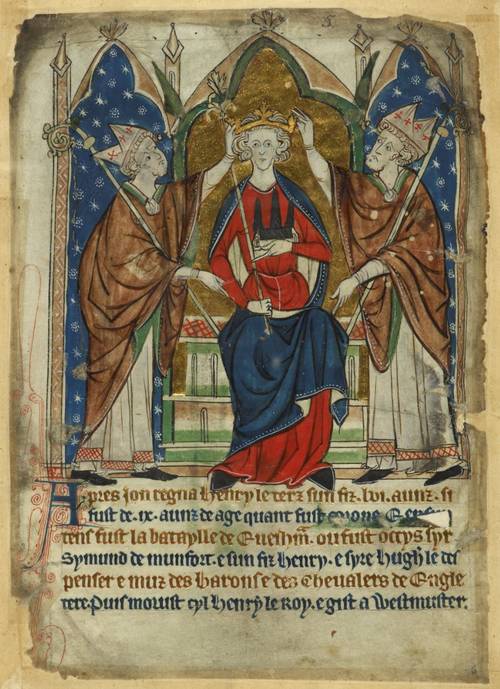 Apres jon regna Henry le terz sun fiz. lvi. aunz. si
fust de .ix. aunz de age quant fust
tens fust la bataylle de Euesham. ou fust occys syr
Symund de munfort. e sun fiz Henry. e syre Hugh le des
penser e muz des barons e des chevalers de Engle
tere. Puis morust cyl Henry le Roy. e gist a Westmuster.